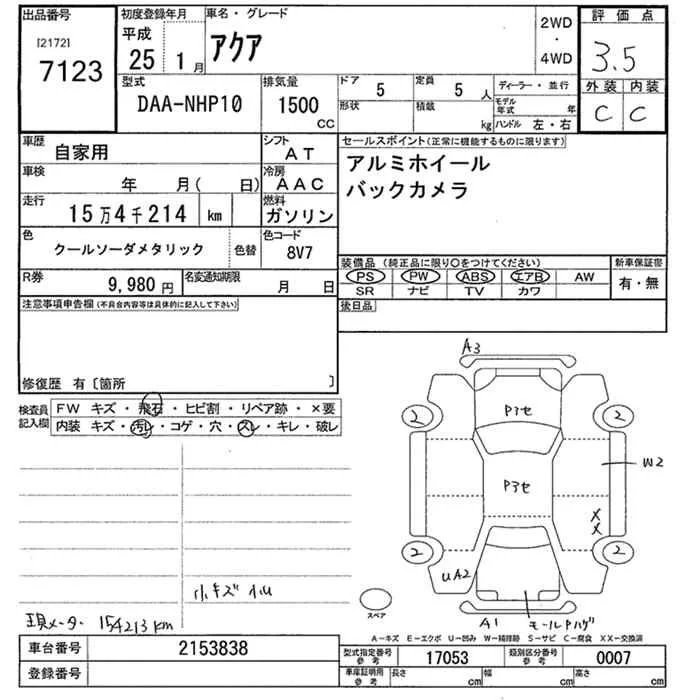 出品番号 初度登録年月 車名・グレード 2WD・4WD 評価点
[2172]
7123
平成
25 1月 アクア 3.5
型式 排気量 ドア 5 定員 5人 ディーラー・並行 外装 内装
DAA-NHP10 1500CC 形状 積載 kg モデル年式 年 C C
ハンドル 左・右
車歴 自家用 シフト AT セールスポイント(正常に機能するものに限ります)
車検 年 月( 日) 冷房 AAC アルミホイール
バックカメラ
走行 15万4千214 km 燃料 ガソリン
色 クールソーダメタリック 色替 色コード 8V7
装備品(純正品に限り○をつけてください) 新車保証書
PS PW ABS エアB AW 有・無
SR ナビ TV カワ
R券 9,980円 名変通知期限 月 日
後日品
注意事項申告欄(不具合内容等は具体的に記入して下さい)
修復歴 有〔箇所 〕
検査員記入欄
FW キズ・飛石・ヒビ割・リペア跡・×要
内装 キズ・汚レ・コゲ・穴・スレ・キレ・破レ
A3
P3セ
2 2
W2
P3セ
XX
2 2
UA2
小キズ 小U
現メーター 154213km
スペア
A1 モールPハゲ
A-キズ E-エクボ U-凹み W-補修跡 S-サビ C-腐食 XX-交換済
車台番号 2153838
登録番号
型式指定番号参考 17053 類別区分番号参考 0007
車庫証明用参考 長さ cm 幅 cm 高さ cm